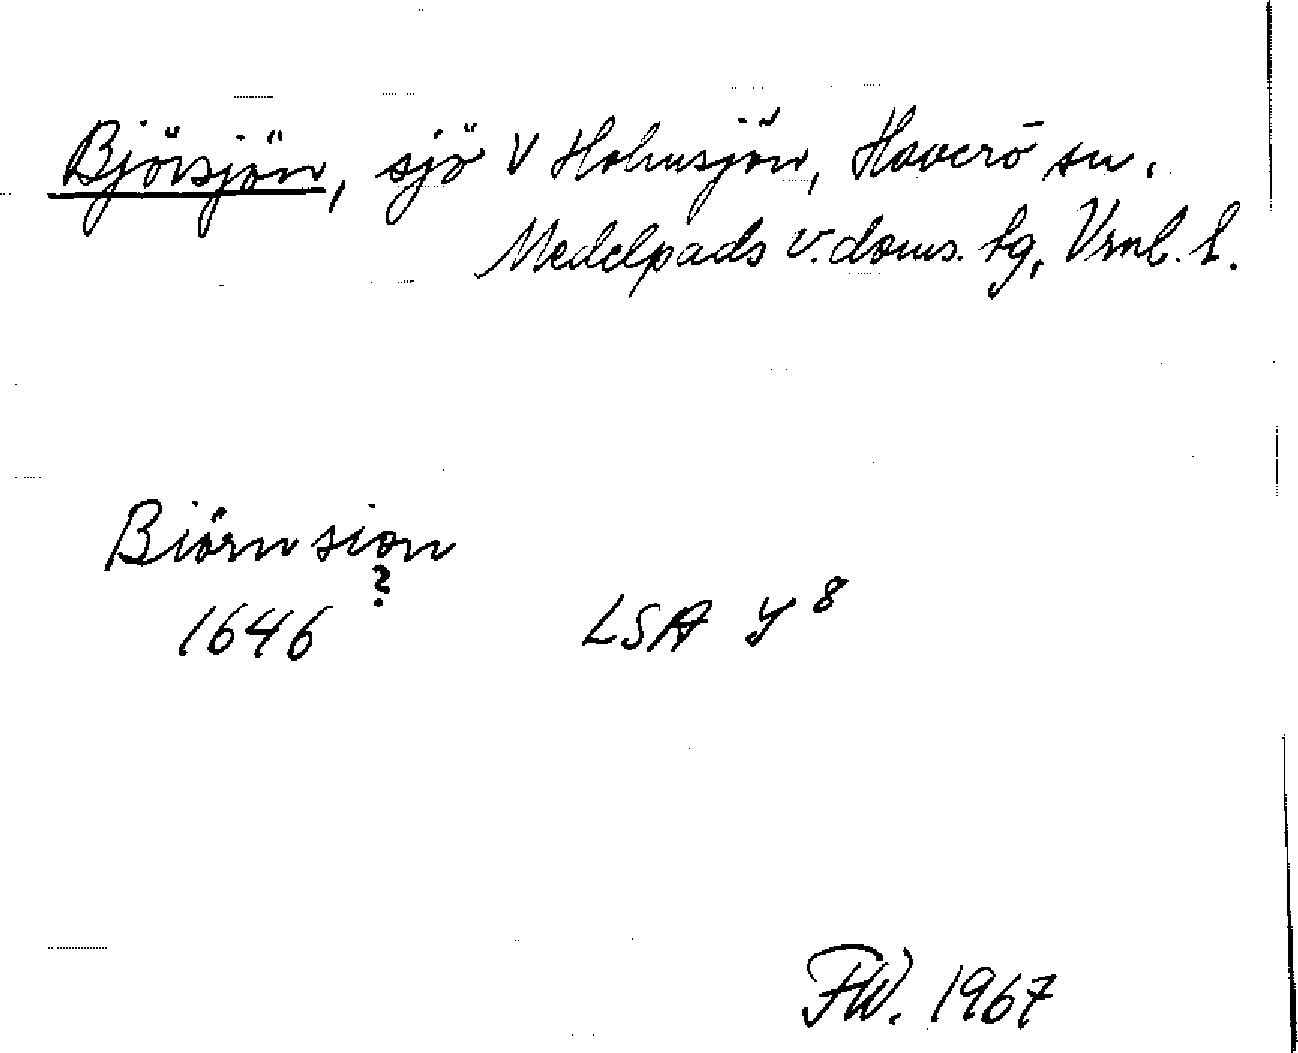 Björsjön, sjö V Holmsjön, Haverö sn.
Medelpads v. doms. tg, Vrnl. l.
Biörnsion
?
1646 LSA Y 8
FW. 1967